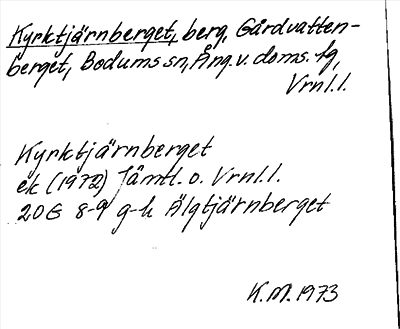 Kyrktjärnberget, berg, Gårdvatten-
berget, Bodums sn, Ång. v. doms. fg,
Vrnl. l.
Kyrktjärnberget
ek (1972) Jämtl. o. Vrnl. l.
20G 8-9 g-h Älgtjärnberget
K.M. 1973